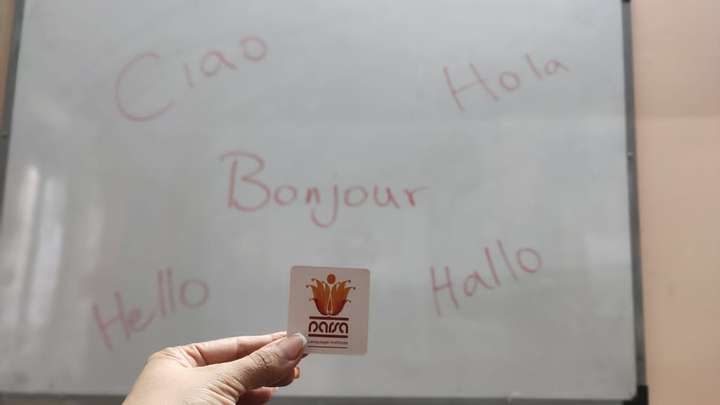 Ciao
Hola
Bonjour
Hello
Hallo
parsa
Language Institute